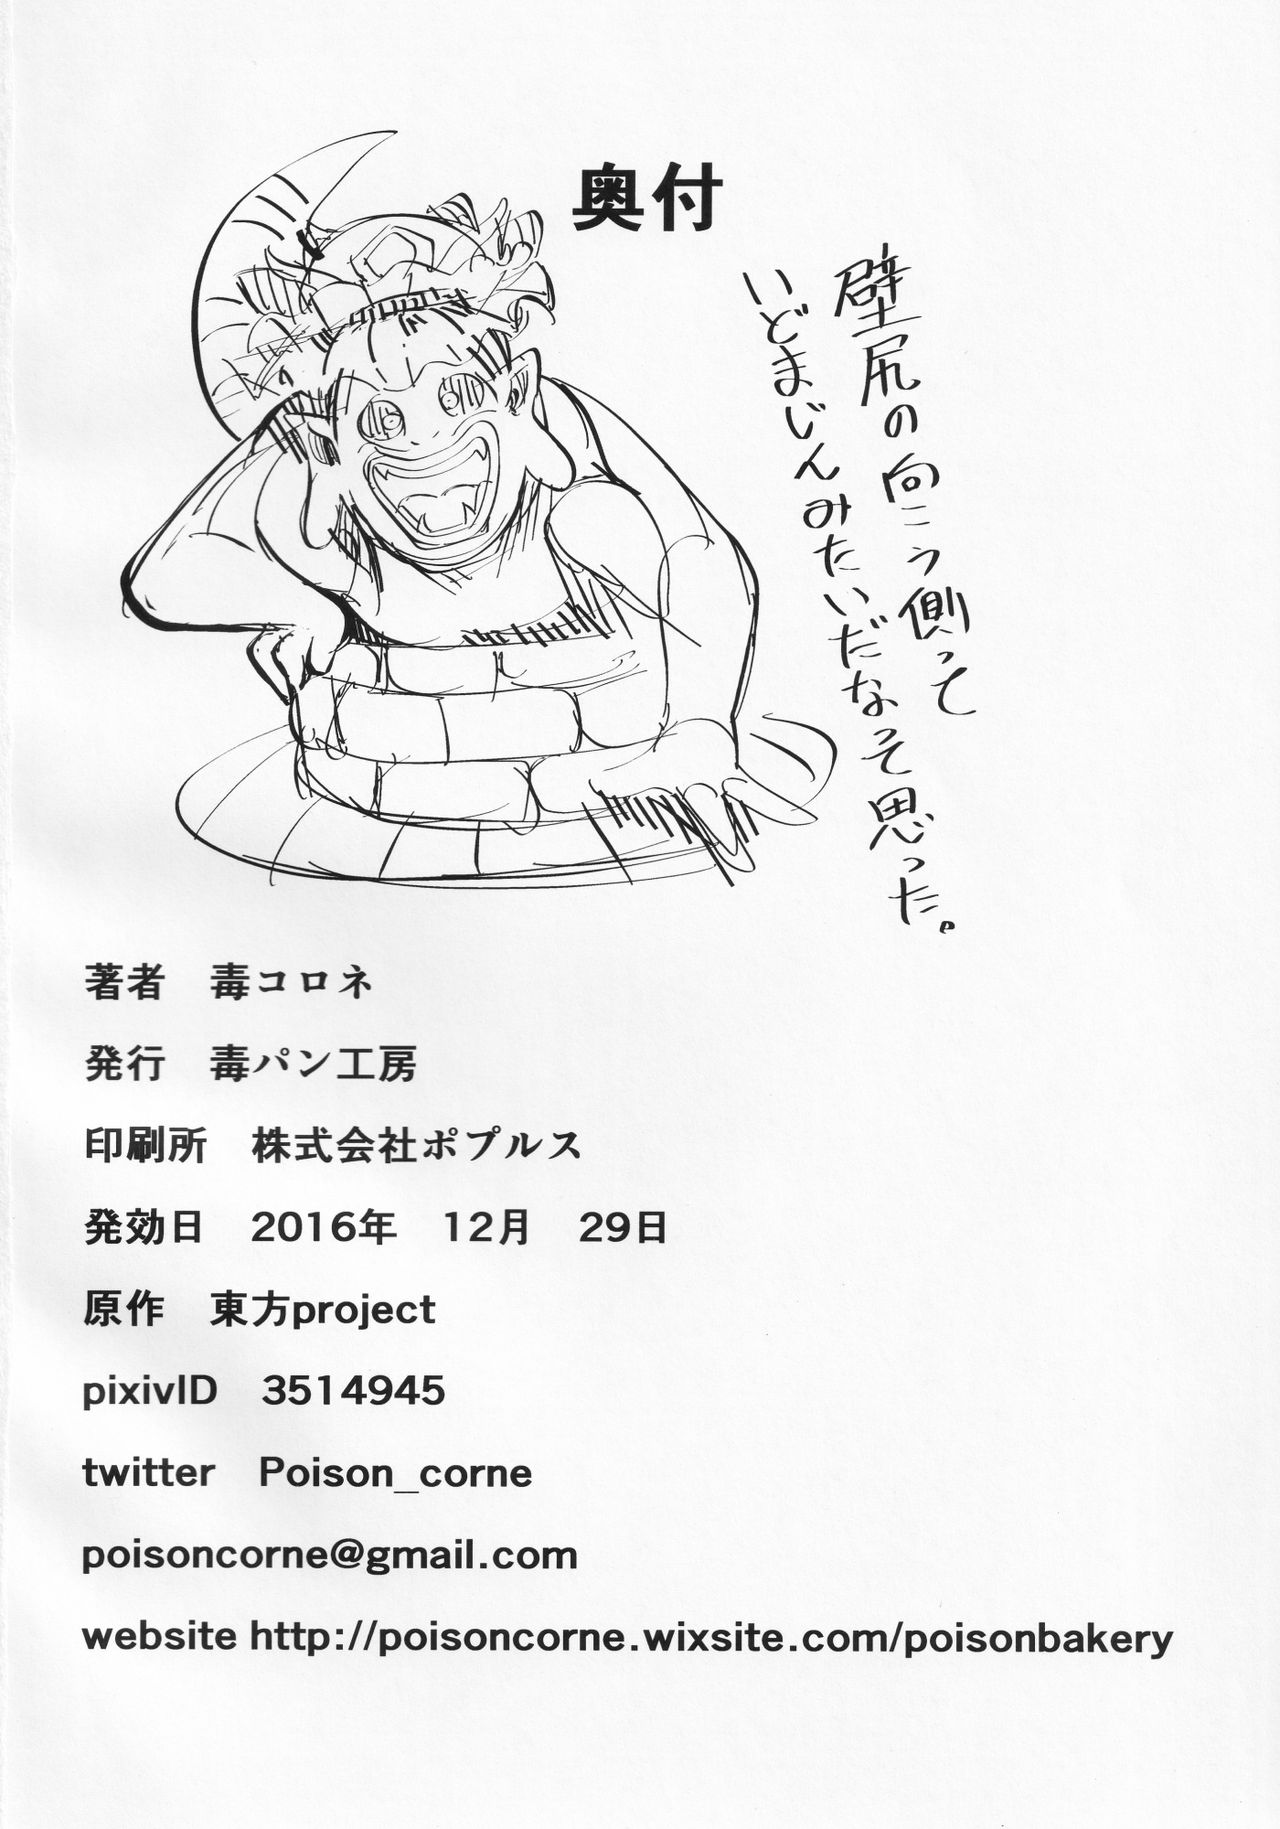 奥付
壁尻の向こう側って
いどまじんみたいだなって思った。
著者　毒コロネ
発行　毒パン工房
印刷所　株式会社ポプルス
発効日　2016年　12月　29日
原作　東方project
pixivID　3514945
twitter　Poison_corne
poisoncorne@gmail.com
website http://poisoncorne.wixsite.com/poisonbakery